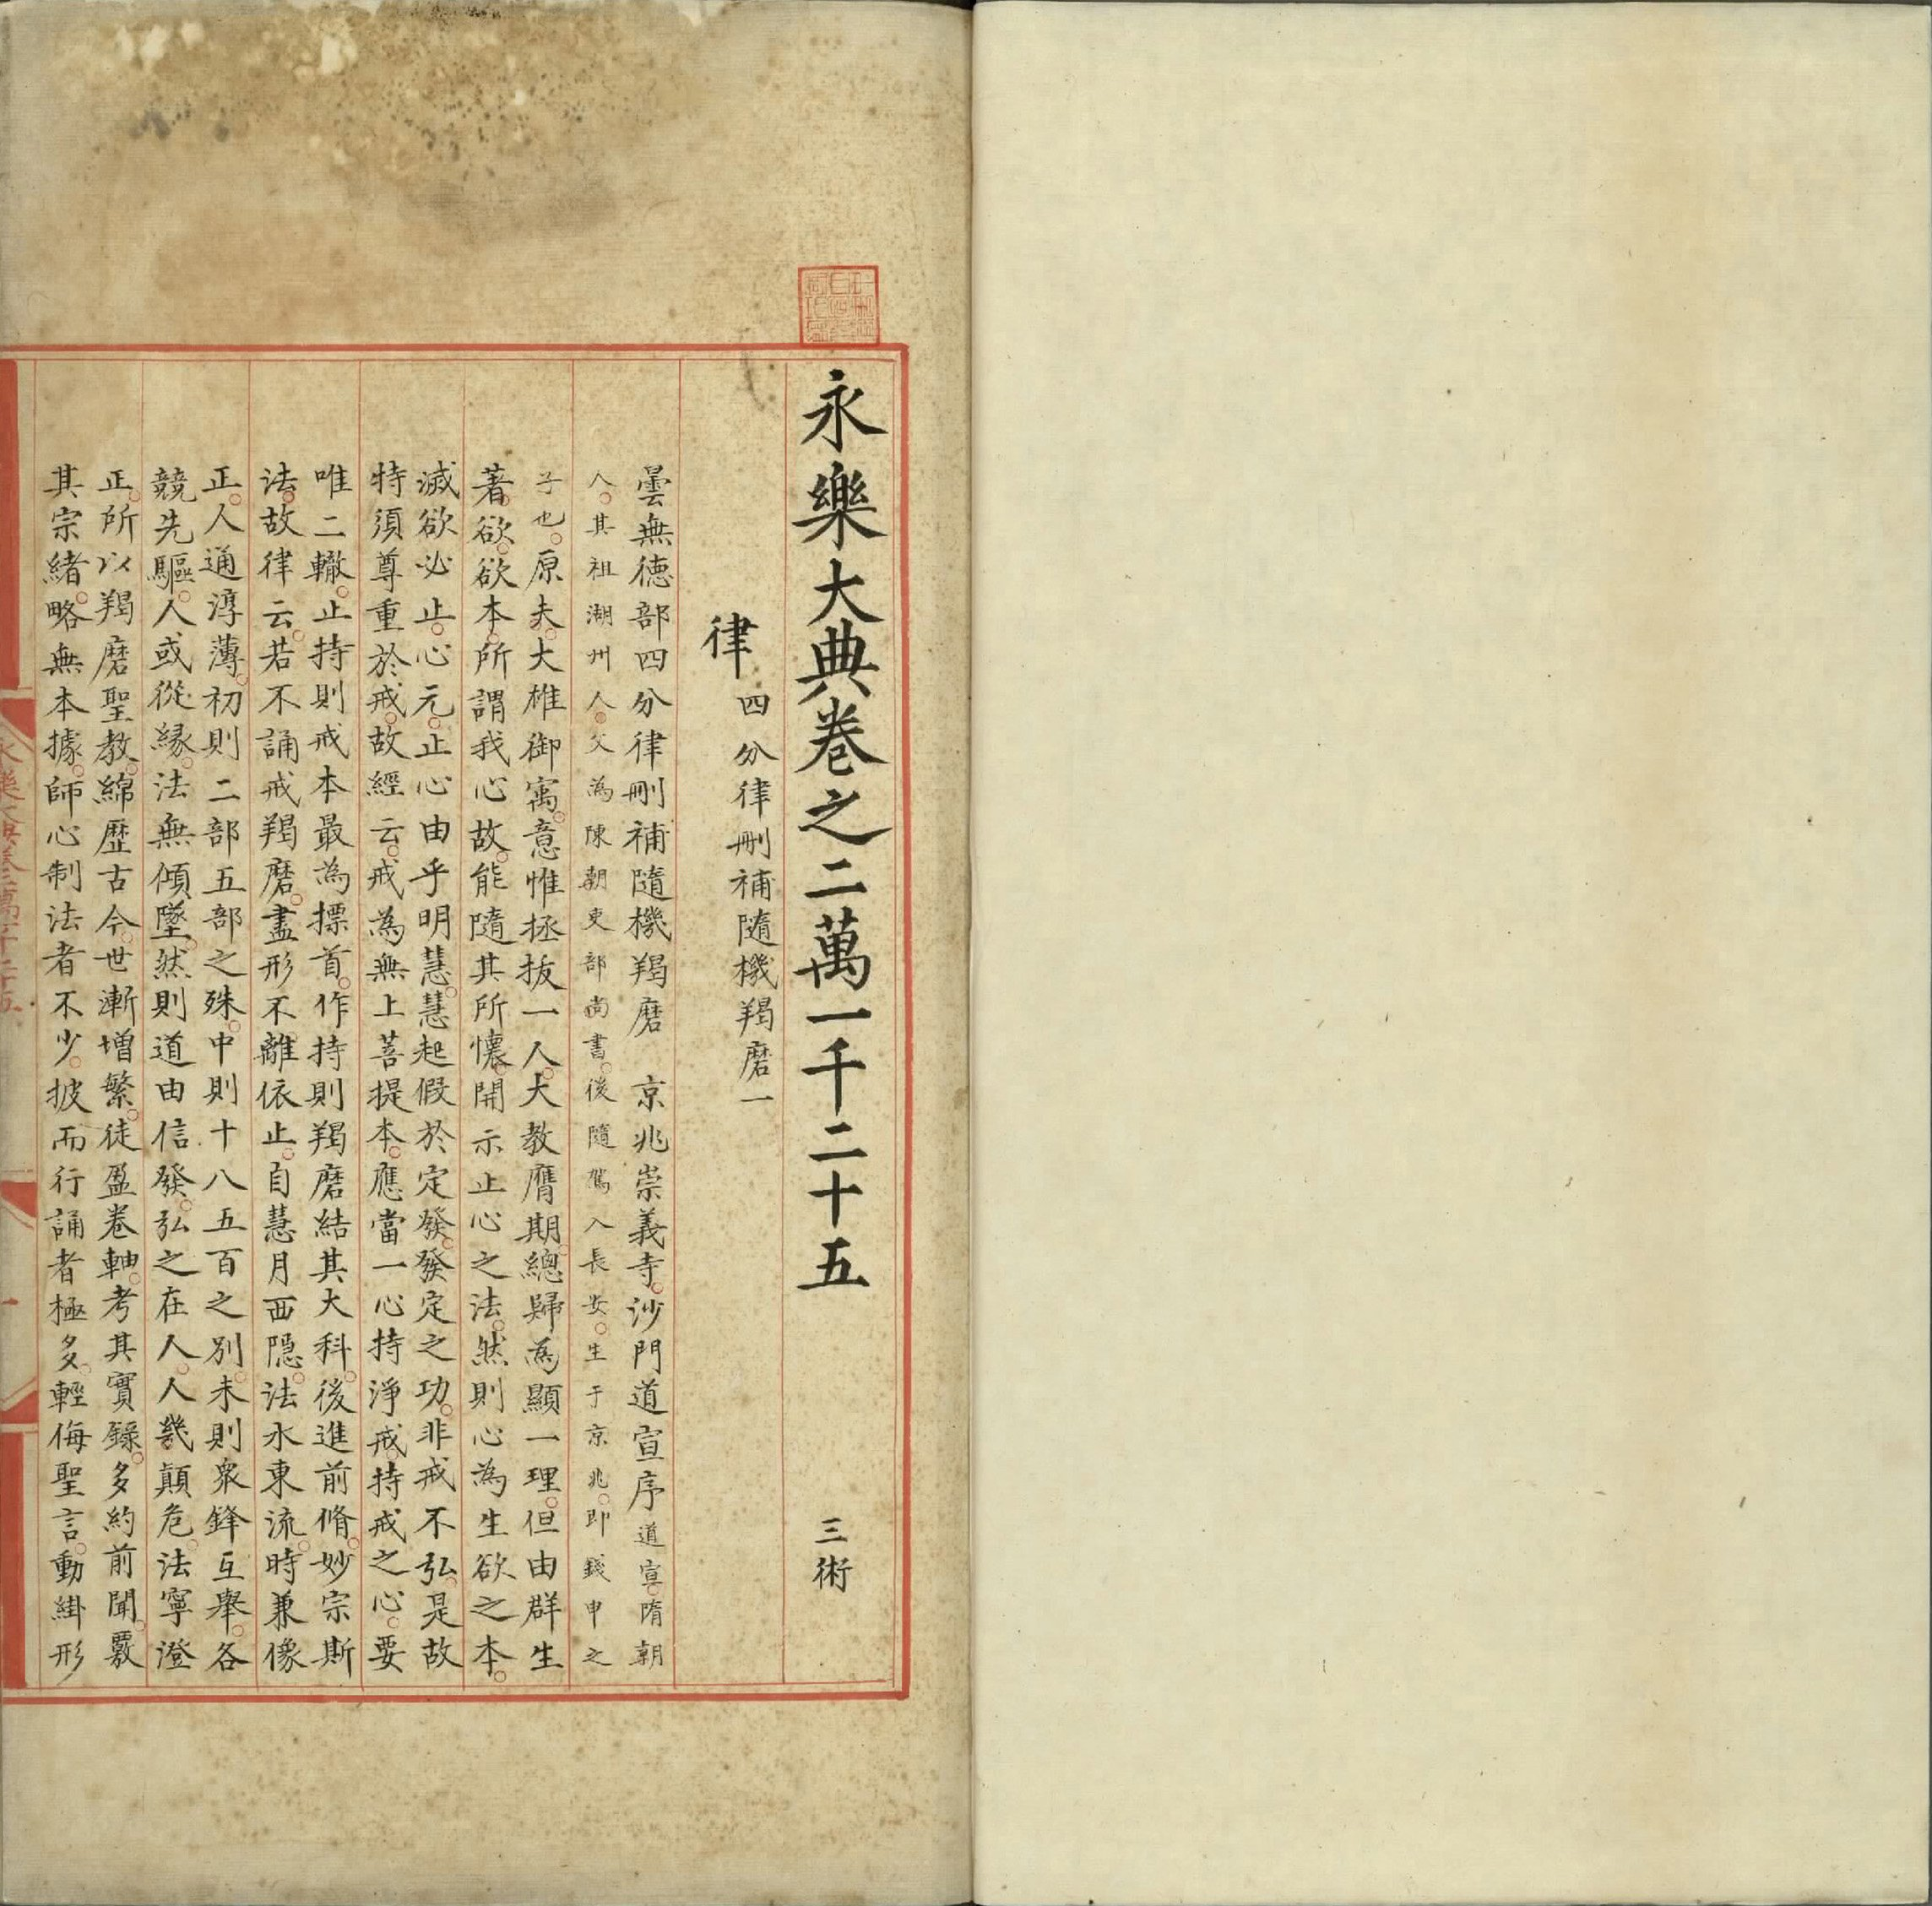 永樂大典卷之二萬一千二十五　三術
律 四分律刪補隨機羯磨一
曇無德部四分律刪補隨機羯磨　京兆崇義寺沙門道宣序 道宣隋朝
人其祖湖州人父為陳朝吏部尚書後隨駕入長安生于京兆即錢申之
子也原夫大雄御寓意惟拯拔一人大教膺期總歸為顯一理但由群生
著欲欲本所謂我心故能隨其所懷開示止心之法然則心為生欲之本
滅欲必止心元止心由乎明慧慧起假於定發發定之功非戒不弘是故
特須尊重於戒故經云戒為無上菩提本應當一心持淨戒持戒之心要
唯二轍止持則戒本最為標首作持則羯磨結其大科後進前脩妙宗斯
法故律云若不誦戒羯磨盡形不離依止自慧月西隱法水東流時兼像
正人通淳薄初則二部五部之殊中則十八五百之別末則衆鋒互舉各
競先驅人或從緣法無傾墜然則道由信發弘之在人人幾顛危法寧澄
正所以羯磨聖教綿歷古今世漸增繁徒盈卷軸考其實錄多約前聞覈
其宗緒略無本據師心制法者不少披而行誦者極多輕侮聖言動掛形